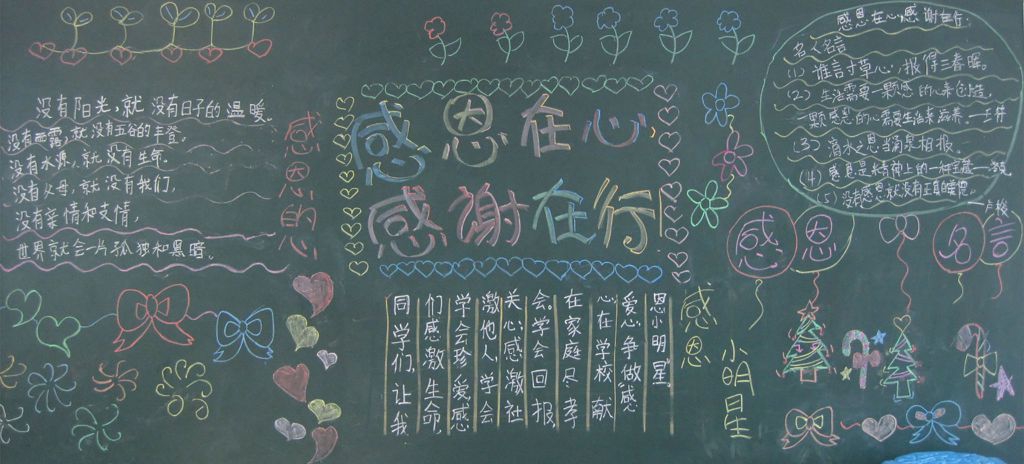 感恩在心
感谢在行
感恩的心
没有阳光,就没有日子的温暖。
没有雨露,就没有五谷的丰登。
没有水源,就没有生命。
没有父母,就没有我们,
没有亲情和友情,
世界就会一片孤独和黑暗。
感恩小明星
同学们,让我
们感激生命,
学会珍爱感
激他人,学会
关心,感激社
会,学会回报
在家庭尽孝
心在学校献
爱心,争做感
恩小明星
感恩在心,感谢在行:
名人名言
(1) 谁言寸草心,报得三春晖。
(2) 生活需要一颗感恩的心来创造,
一颗感恩的心需要生活来滋养。
(3) 滴水之恩当涌泉相报。
(4) 感恩是
(5) 没有感恩就没有真正的美德。
感恩名言